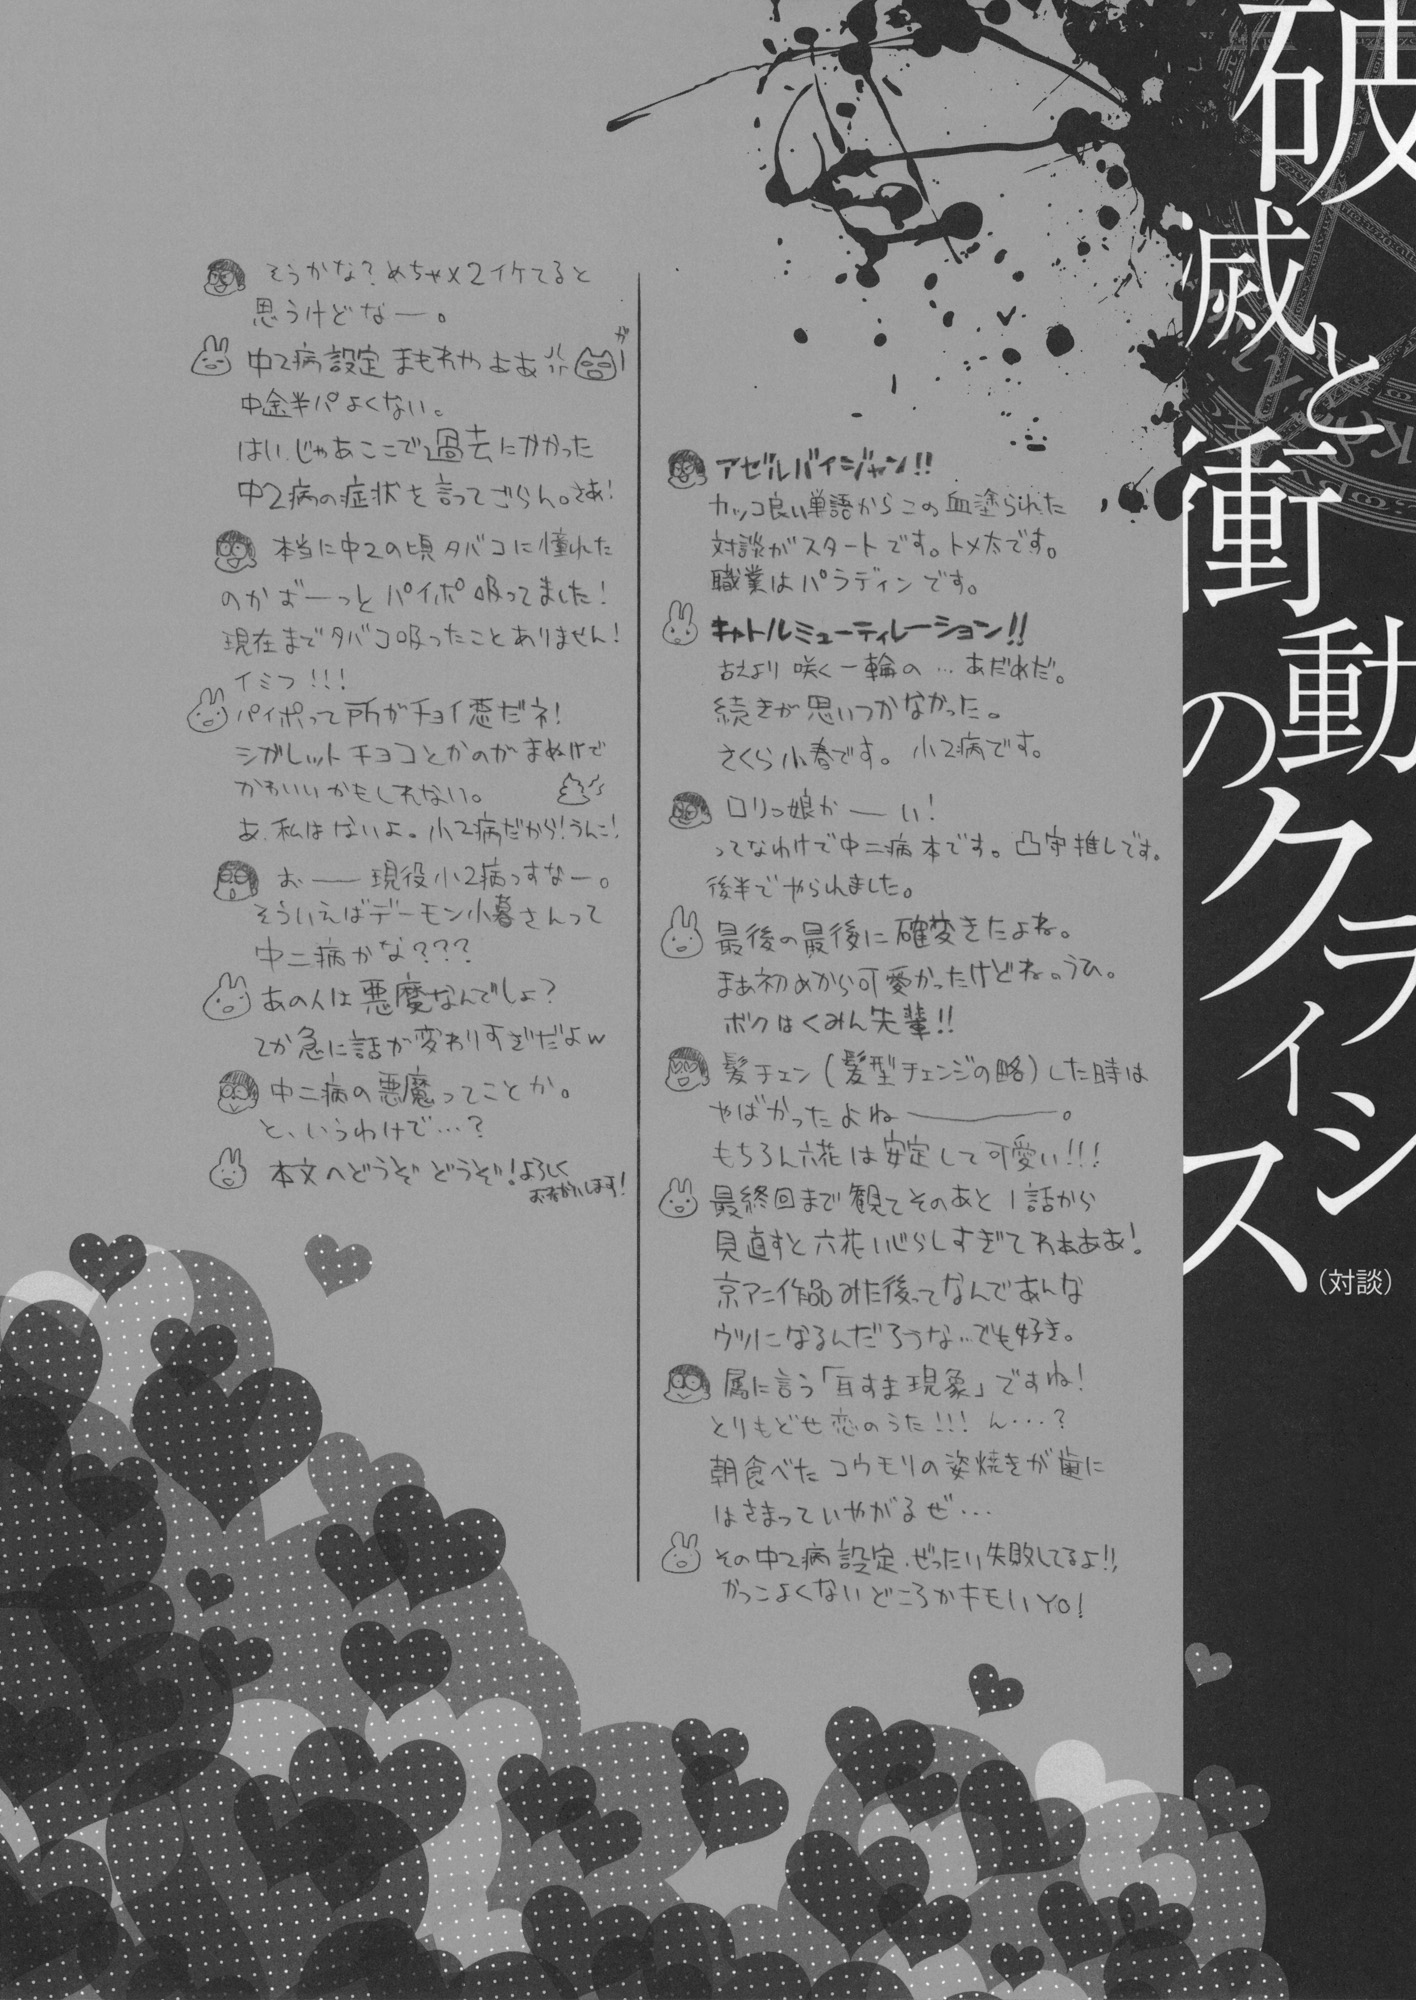 破滅と衝動のクライシス
(対談)
アゼルバイジャン!!
カッコ良い単語からこの血塗られた
対談がスタートです。トメ太です。
職業はパラディンです。
キャトルミューティレーション!!
古えより咲く一輪の…あだめだ。
続きが思いつかなかった。
さくら小春です。小2病です。
ロリっ娘かーい!
ってなわけで中二病本です。凸守推しです。
後半でやられました。
最後の最後に確変きたよね。
まぁ初めから可愛かったけどね。うひ。
ボクはくみん先輩!!
髪チェン(髪型チェンジの略)した時は
やばかったよねー。
もちろん六花は安定して可愛い!!!
最終回まで観てそのあと1話から
見直すと六花いじらしすぎてわぁああ!
京アニ作品みた後ってなんであんな
ウツになるんだろうな…でも好き。
属に言う「耳すま現象」ですね!
とりもどせ恋のうた!!!ん…?
朝食べたコウモリの姿焼きが歯に
はさまっていやがるぜ…
その中2病設定、ぜったい失敗してるよ!!
かっこよくないどころかキモいYO!
そうかな?めちゃメ2イケてると
思うけどなー。
中2病設定まもれやぁぁあ
ガー
中途半パよくない。
はい、じゃあここで過去にかかった
中2病の症状を言ってごらん。さあ!
本当に中2の頃タバコに憧れた
のかずーっとパイポ吸ってました!
現在までタバコ吸ったことありません!
イミフ!!!
パイポって所がチョイ悪だネ!
シガレットチョコとかのがまぬけで
かわいいかもしれない。
あ、私はないよ。小2病だから!うんこ!
おー現役小2病っすなー。
そういえばデーモン小暮さんって
中二病かな???
あの人は悪魔なんでしょ?
てか急に話が変わりすぎだよw
中二病の悪魔ってことか。
と、いうわけで…?
本文へどうぞどうぞ!よろしく
お願いします!